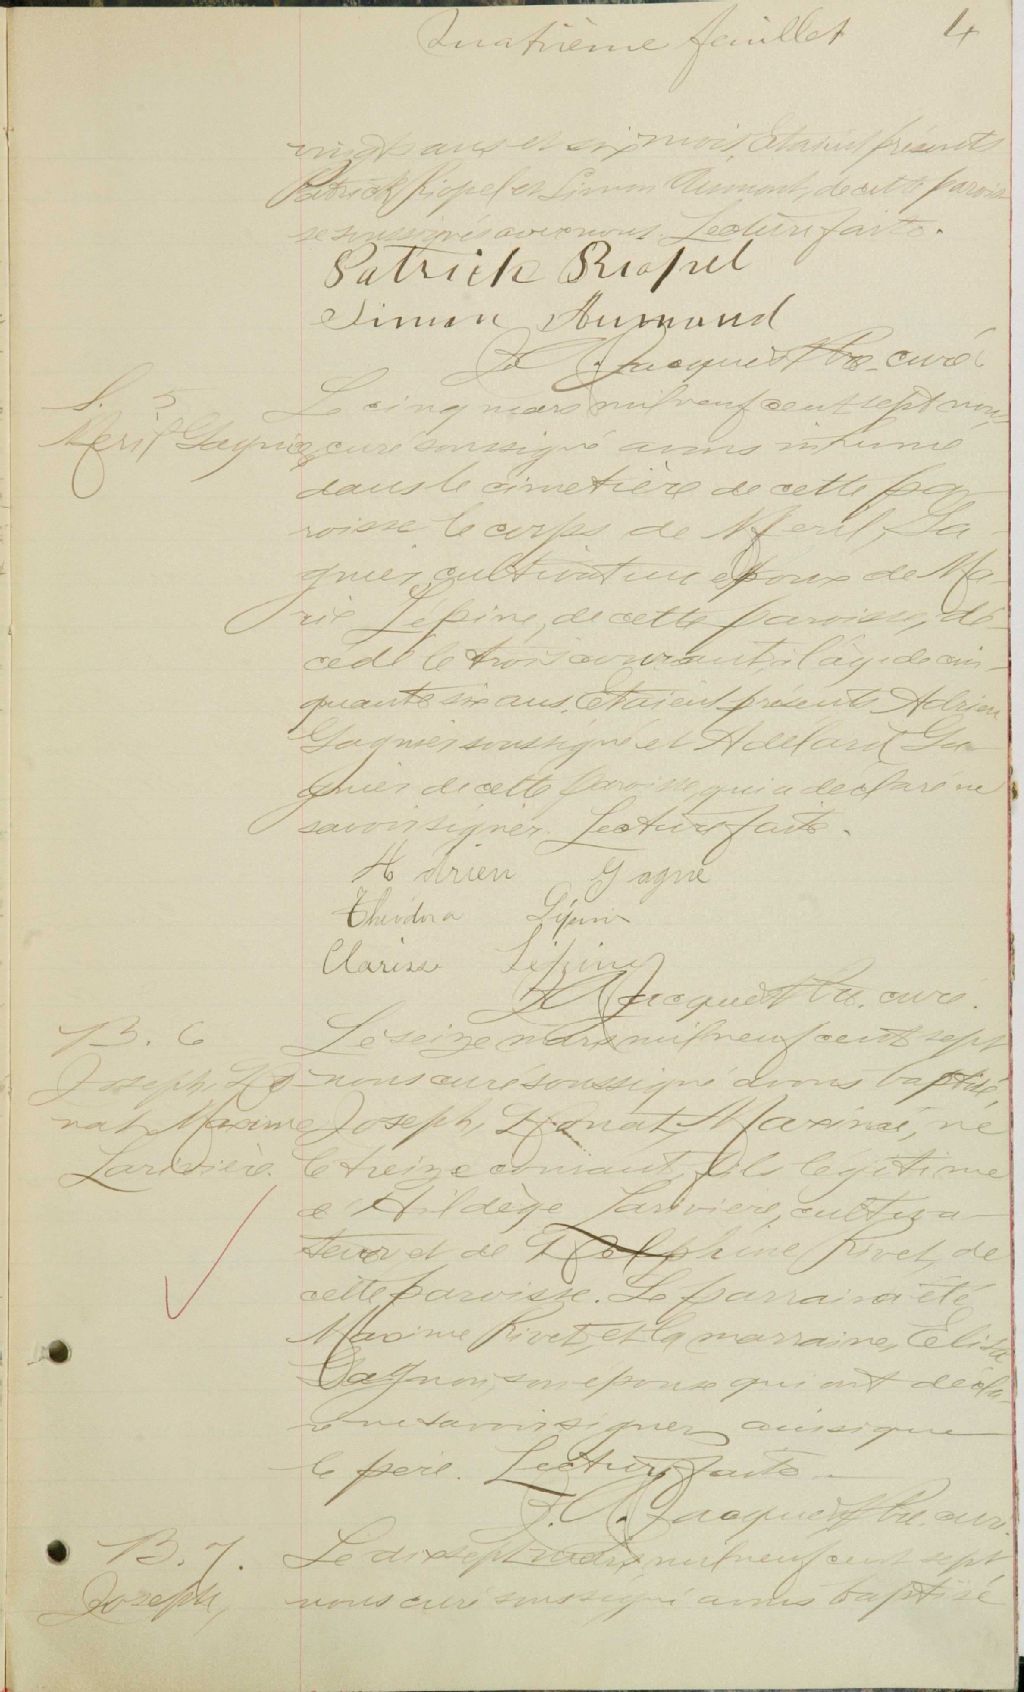 Quatrième feuillet 4
vingt ans et six mois. Etaient présents
Patrick Riopel et Simon Aumont, de cette parois-
se soussignés avec nous. Lecture faite.
Patrick Riopel
Simon Aumond
Jacques Ptre. curé
S. 5
Meril Gagnier
Le cinq mars mil neuf cent sept nous
curé soussigné avons inhumé
dans le cimetière de cette pa-
roisse le corps de Meril, Ga-
gnier, cultivateur époux de Ma-
rie Lépine, de cette paroisse, dé-
cédé le trois courant, à l'âge de cin-
quante six ans. Etaient présents Adrien
Gagnier soussigné et Adélard Ga-
gnier de cette paroisse, qui a déclaré ne
savoir signer. Lecture faite.
Adrien Gagné
Théodora Lépine
Clarisse Lépine
Jacques Ptre. curé.
B. 6
Joseph, Do-
nat Maxime
Larivière.
Le seize mars mil neuf cent sept
nous curé soussigné avons baptisé,
Joseph, Donat, Maxime, né
le treize courant, fils légitime
d'Hildège Larivière, cultiva-
teur et de Dolphine Rivet, de
cette paroisse. Le parrain a été
Maxime Rivet, et la marraine, Elisa
Gagnon, son épouse qui ont décla-
ré ne savoir signer ainsi que
le père. Lecture faite.
J. A. Jacques Ptre. curé.
B. 7.
Joseph,
Le dix sept mars mil neuf cent sept
nous curé soussigné avons baptisé